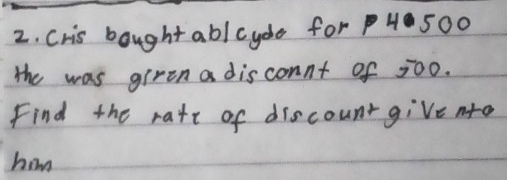 2. Cris bought a bicycle for ₱4500
He was given a discount of 500.
Find the rate of discount given to
him